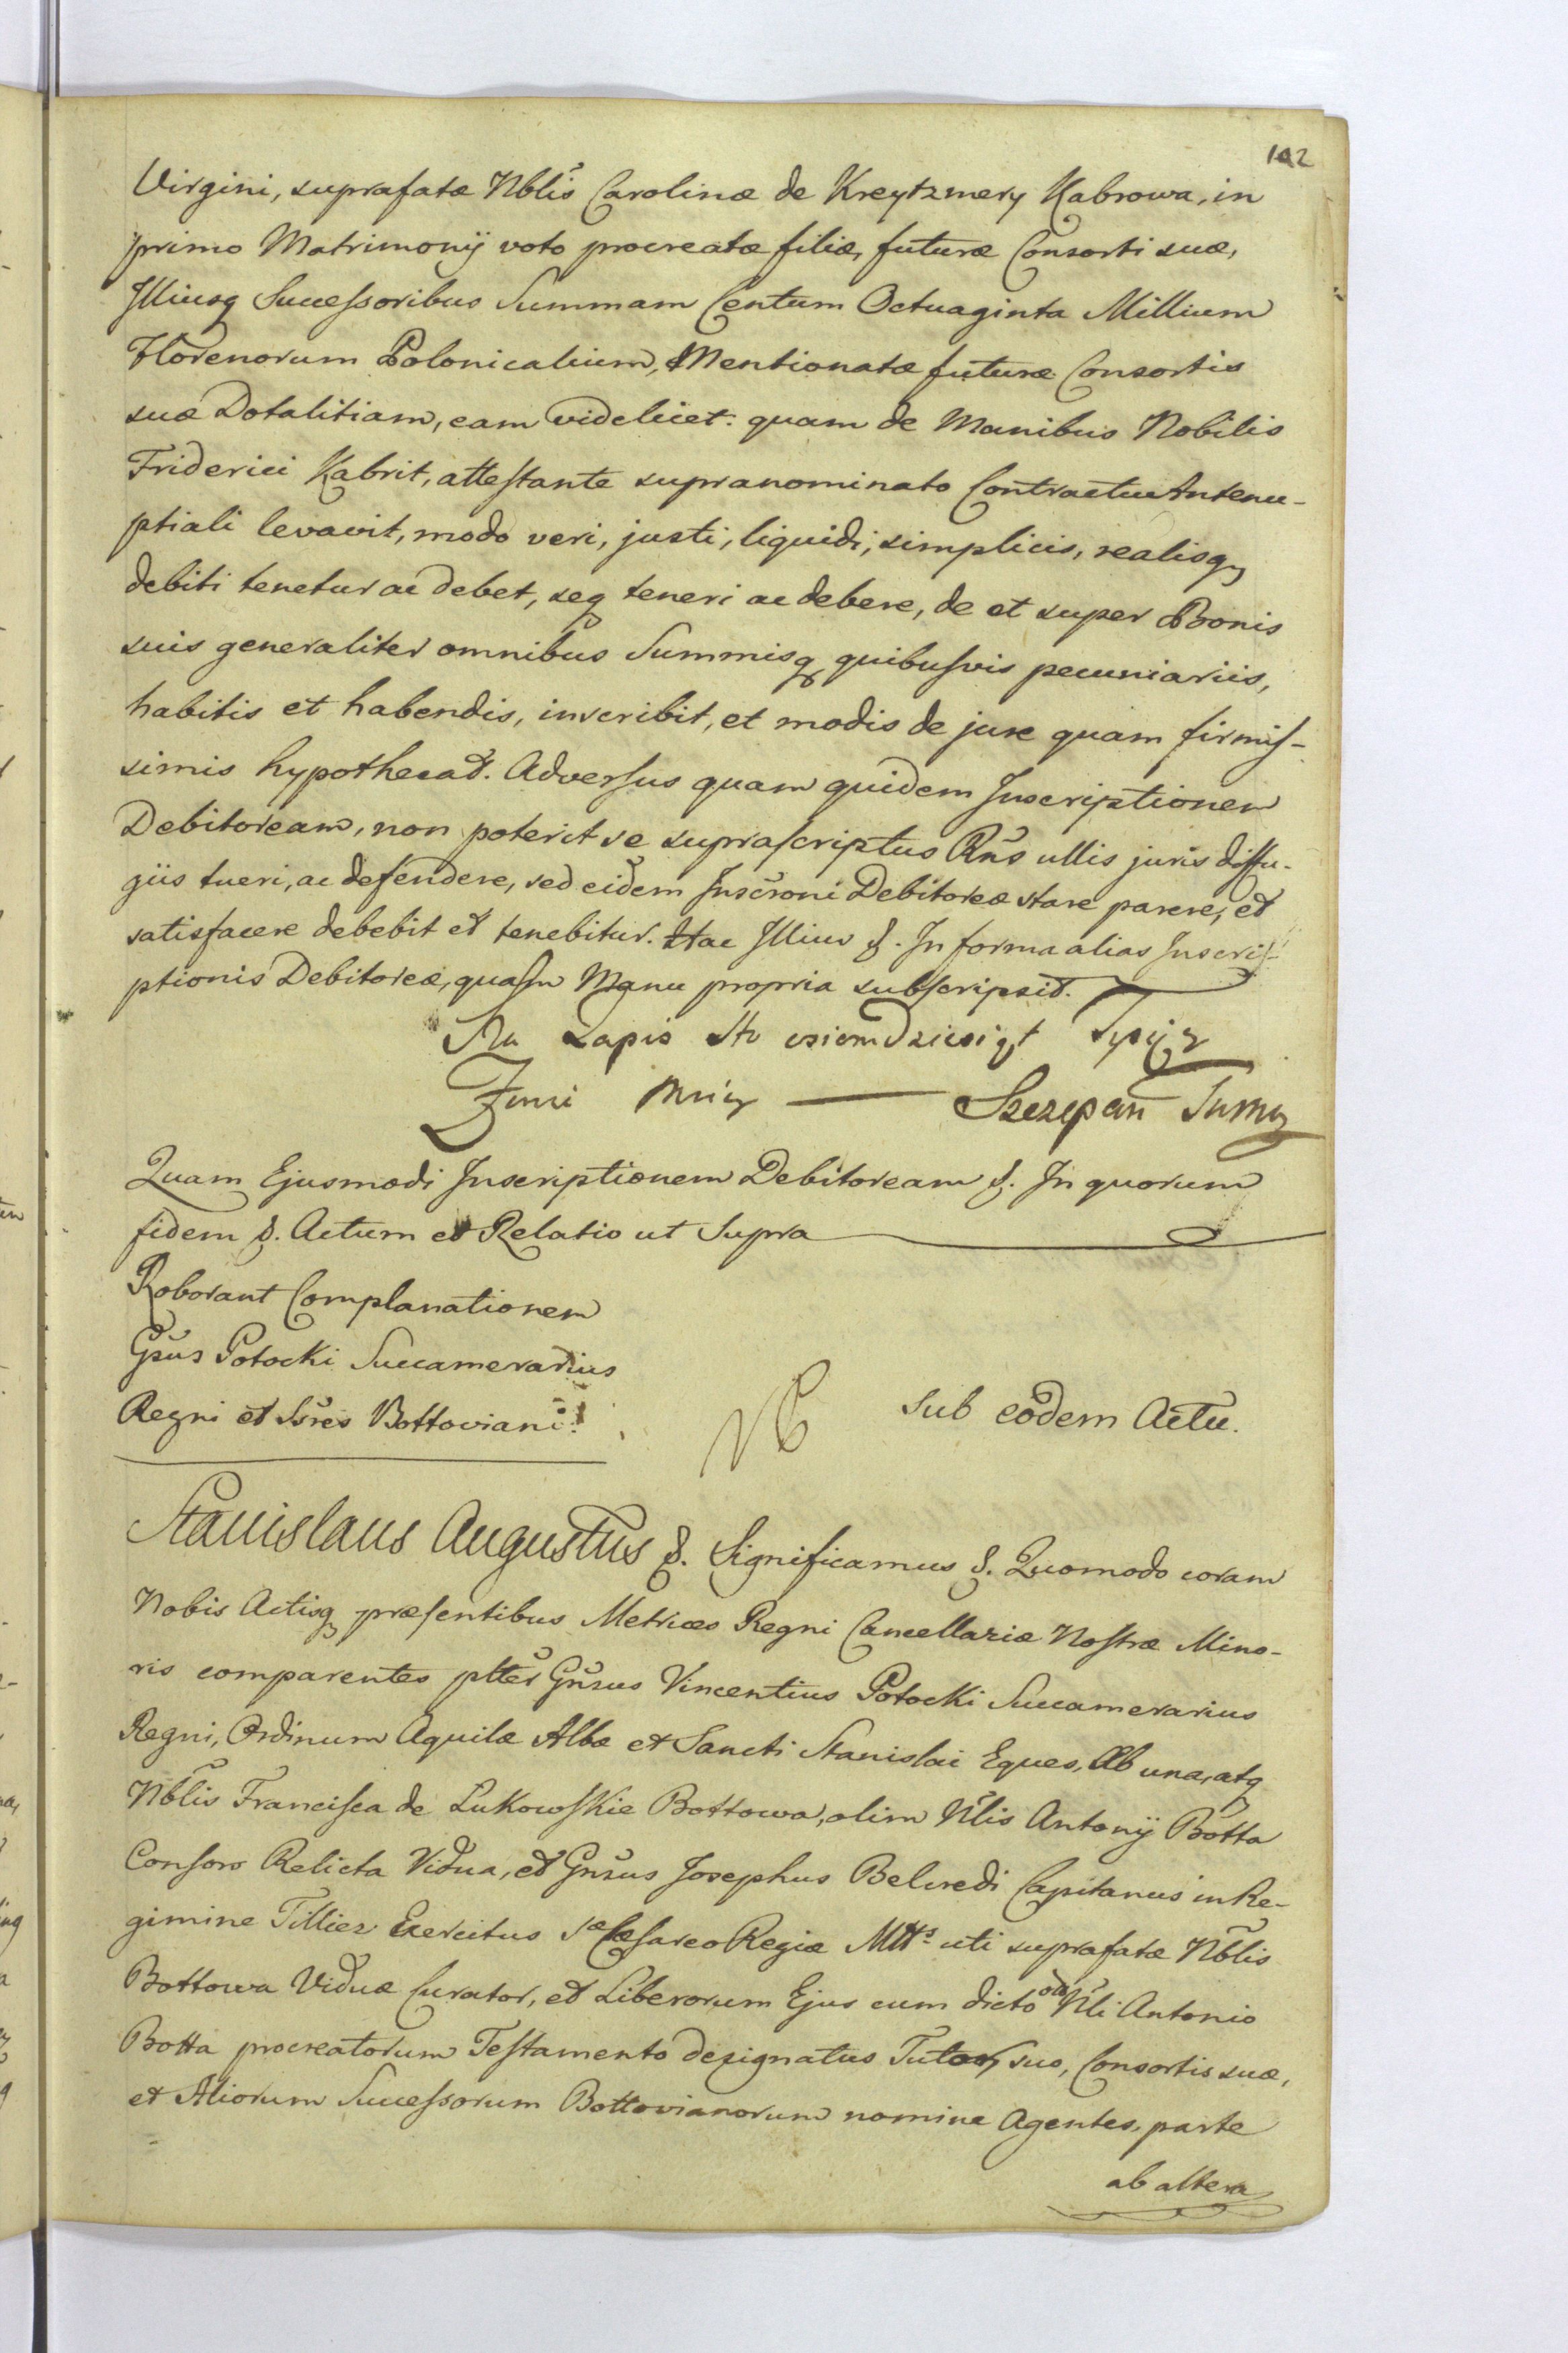 102
Virgini, suprafatæ Nblis Carolinæ de Kreytzmery Kabrowa, in
primo Matrimonij voto procreatæ filiæ, futuræ Consorti suæ,
Illiusq Successoribus Summam Centum Octuaginta Millium
Florenorum Polonicalium, Mentionatæ futuræ Consortis
suæ Dotalitiam, eam videlicet: quam de Manibus Nobilis
Friderici Kabrit, attestante supranominato Contractu Antenu-
ptiali levavit, modo veri, justi, liquidi, simplicis, realisq
debiti tenetur ac debet, seq teneri ac debere, de et super Bonis
suis generaliter omnibus Summisq quibusvis pecuniariis,
habitis et habendis, inscribit, et modis de jure quam firmis-
simis hypothecat. Adversus quam quidem Inscriptionem
Debitoream, non poterit se suprascriptus Rns ullis juris diffu-
giis tueri, ac defendere, sed eidem Inscroni Debitoreæ stare parere, et
satisfacere debebit et tenebitur. Hac Illius &. In forma alias Inscri-
ptionis Debitoreæ, quasm Manu propria subscripsit.
Na Zapis Sto osiemdziesiąt Tysięz
Szczepan
Quam Ejusmodi Inscriptionem Debitoream &. In quorum
fidem &. Actum et Relatio ut Supra
Roborant Complanationem
Gsus Potocki Succamerarius
Regni et Ssres Bottoviani.
NB
Sub eodem Actu.
Stanislaus Augustus &. Significamus &. Quomodo coram
Nobis Actisq præsentibus Metrices Regni Cancellariæ Nostræ Mino-
ris comparentes plter Gnsus Vincentius Potocki Succamerarius
Regni, Ordinum Aquilæ Albæ et Sancti Stanislai Eques, Ab una, atq
Nblis Francisca de Lukowskie Bottowa, olim Nlis Antonij Botta
Consors Relicta Vidua, et Gnsus Josephus Belcredi Capitaneus in Re-
gimine Tillier Exercitus Sæ Cæsareo Regiæ Mtts uti suprafatæ Nblis
Bottowa Viduæ Curator, et Liberorum Ejus cum dicto olim Nli Antonio
Botta procreatorum Testamento designatus Tutor, suo, Consortis suæ,
et Aliorum Successorum Bottovianorum nomine Agentes, parte
ab altera